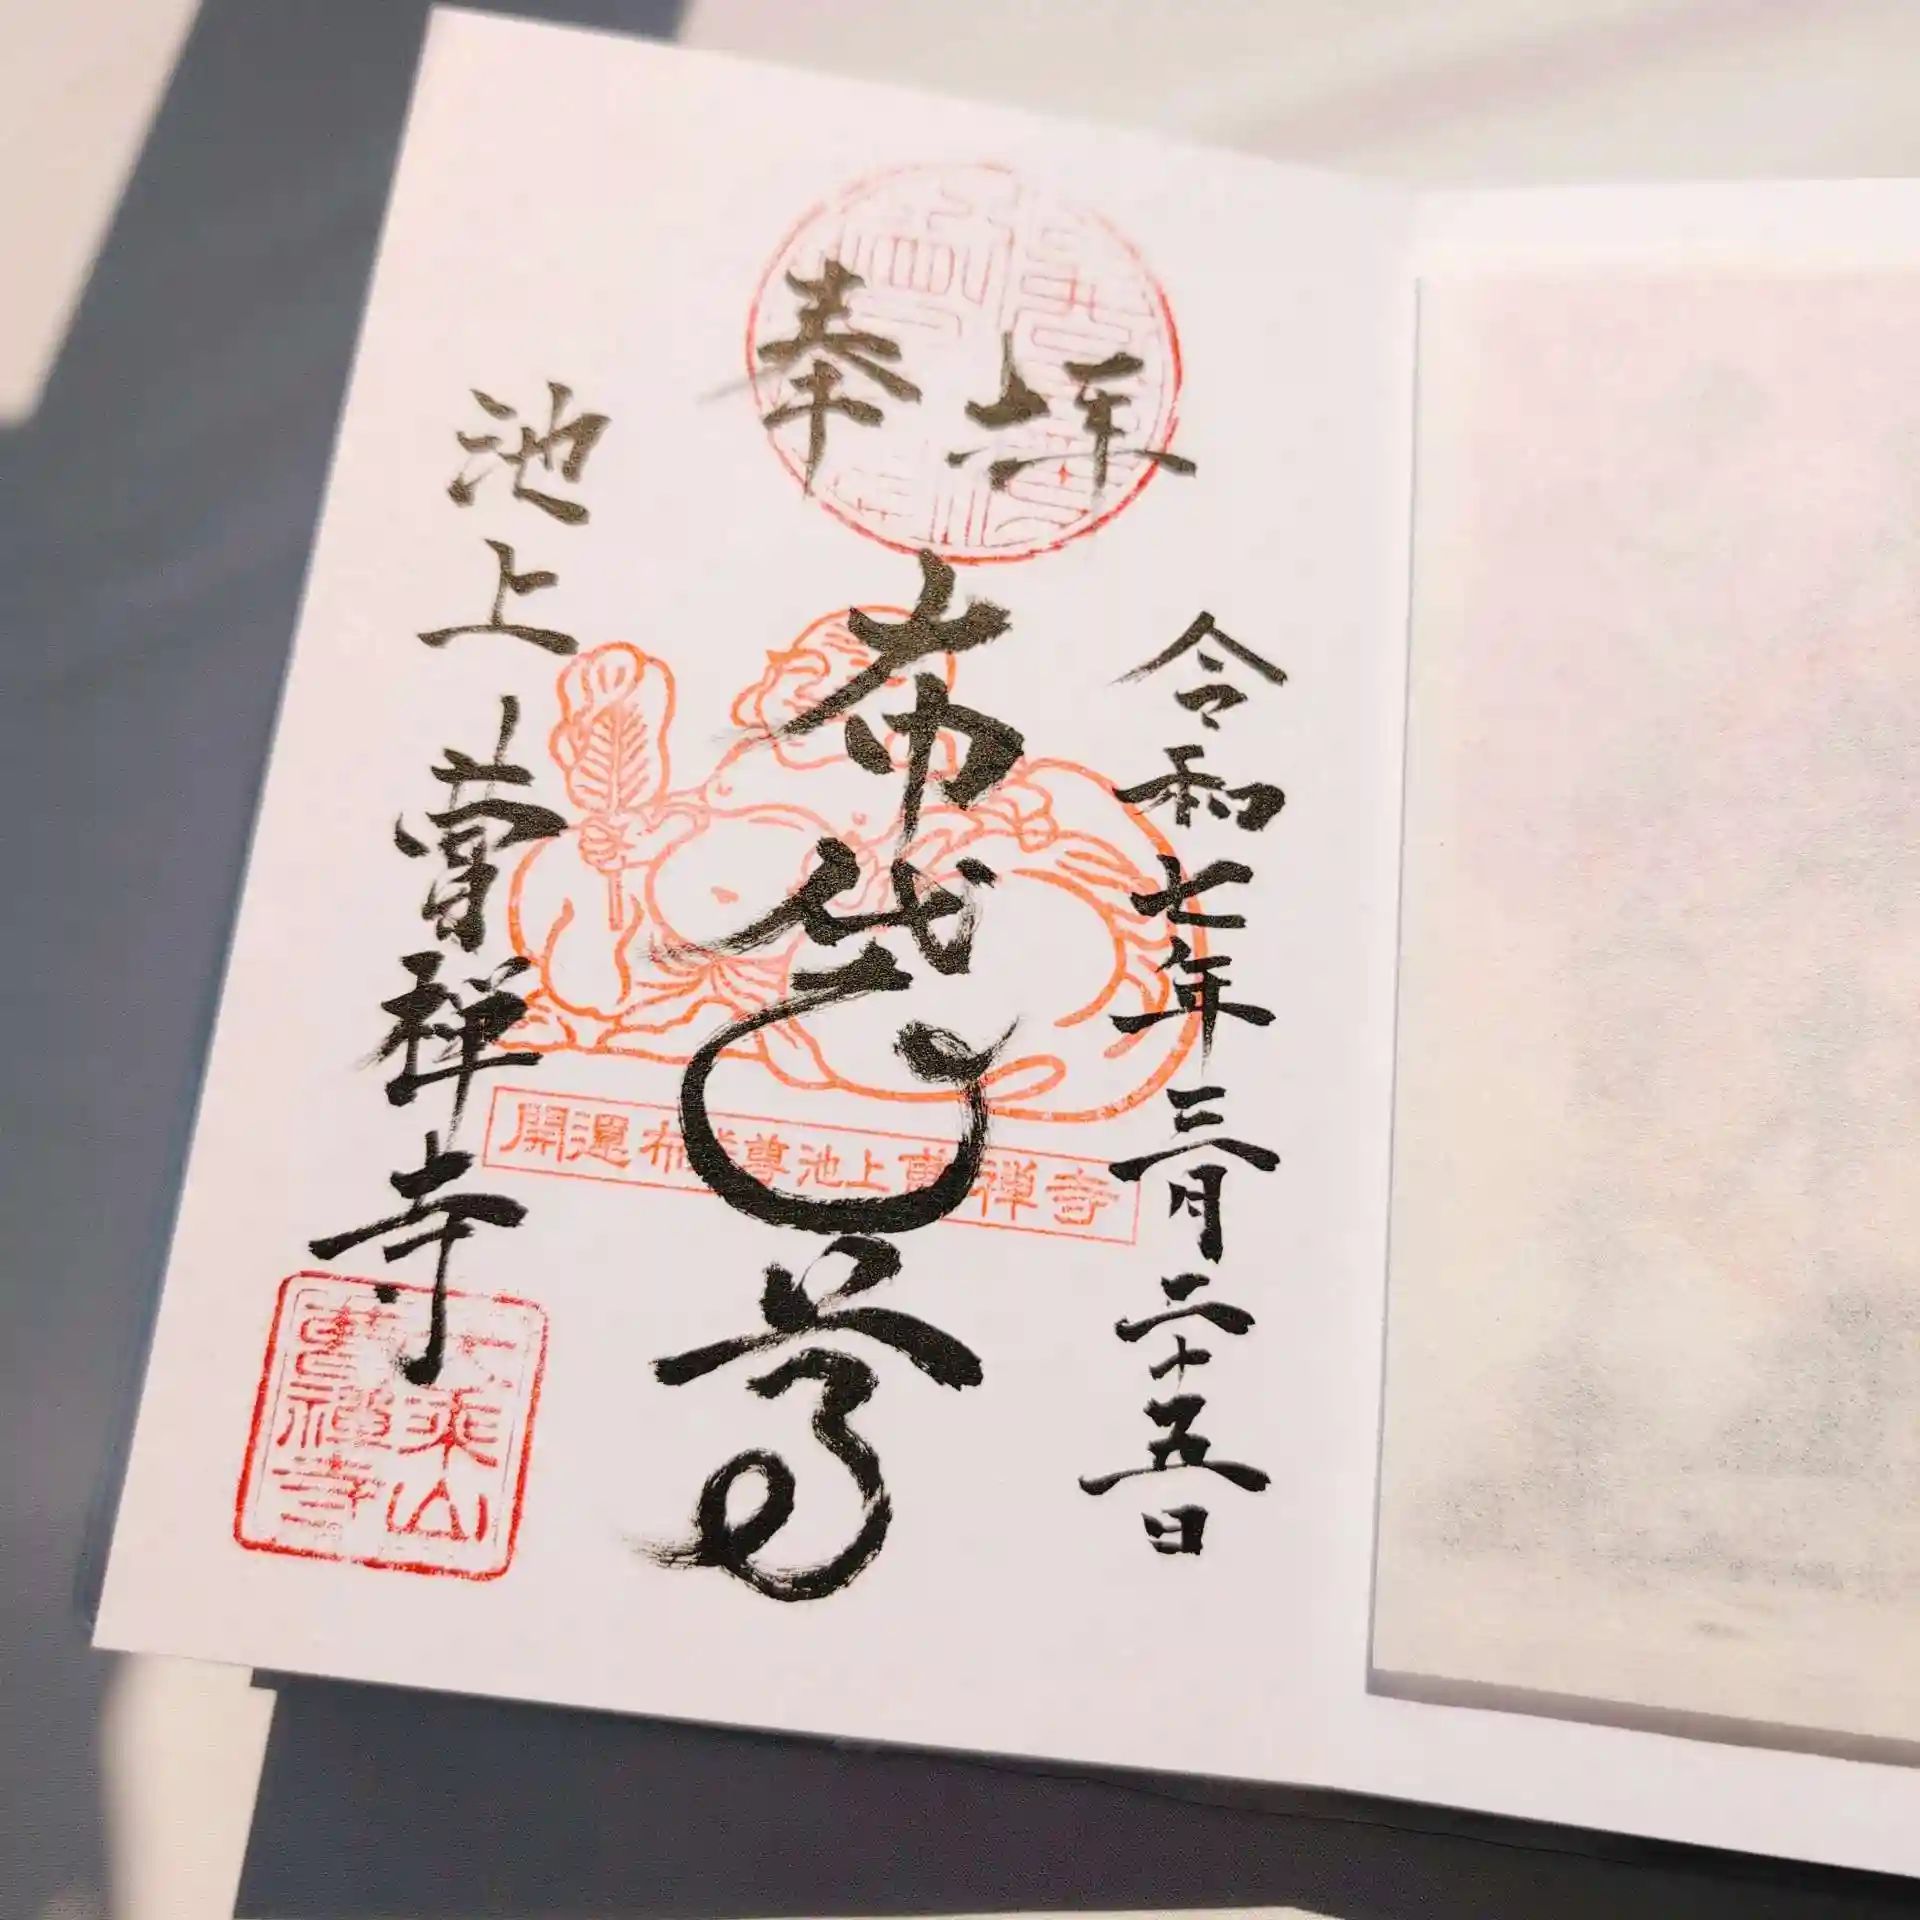 奉拝
令和七年三月二十五日
布袋尊
池上 曹禅寺
開運布袋尊池上曹禅寺
大乗山
曹禅寺